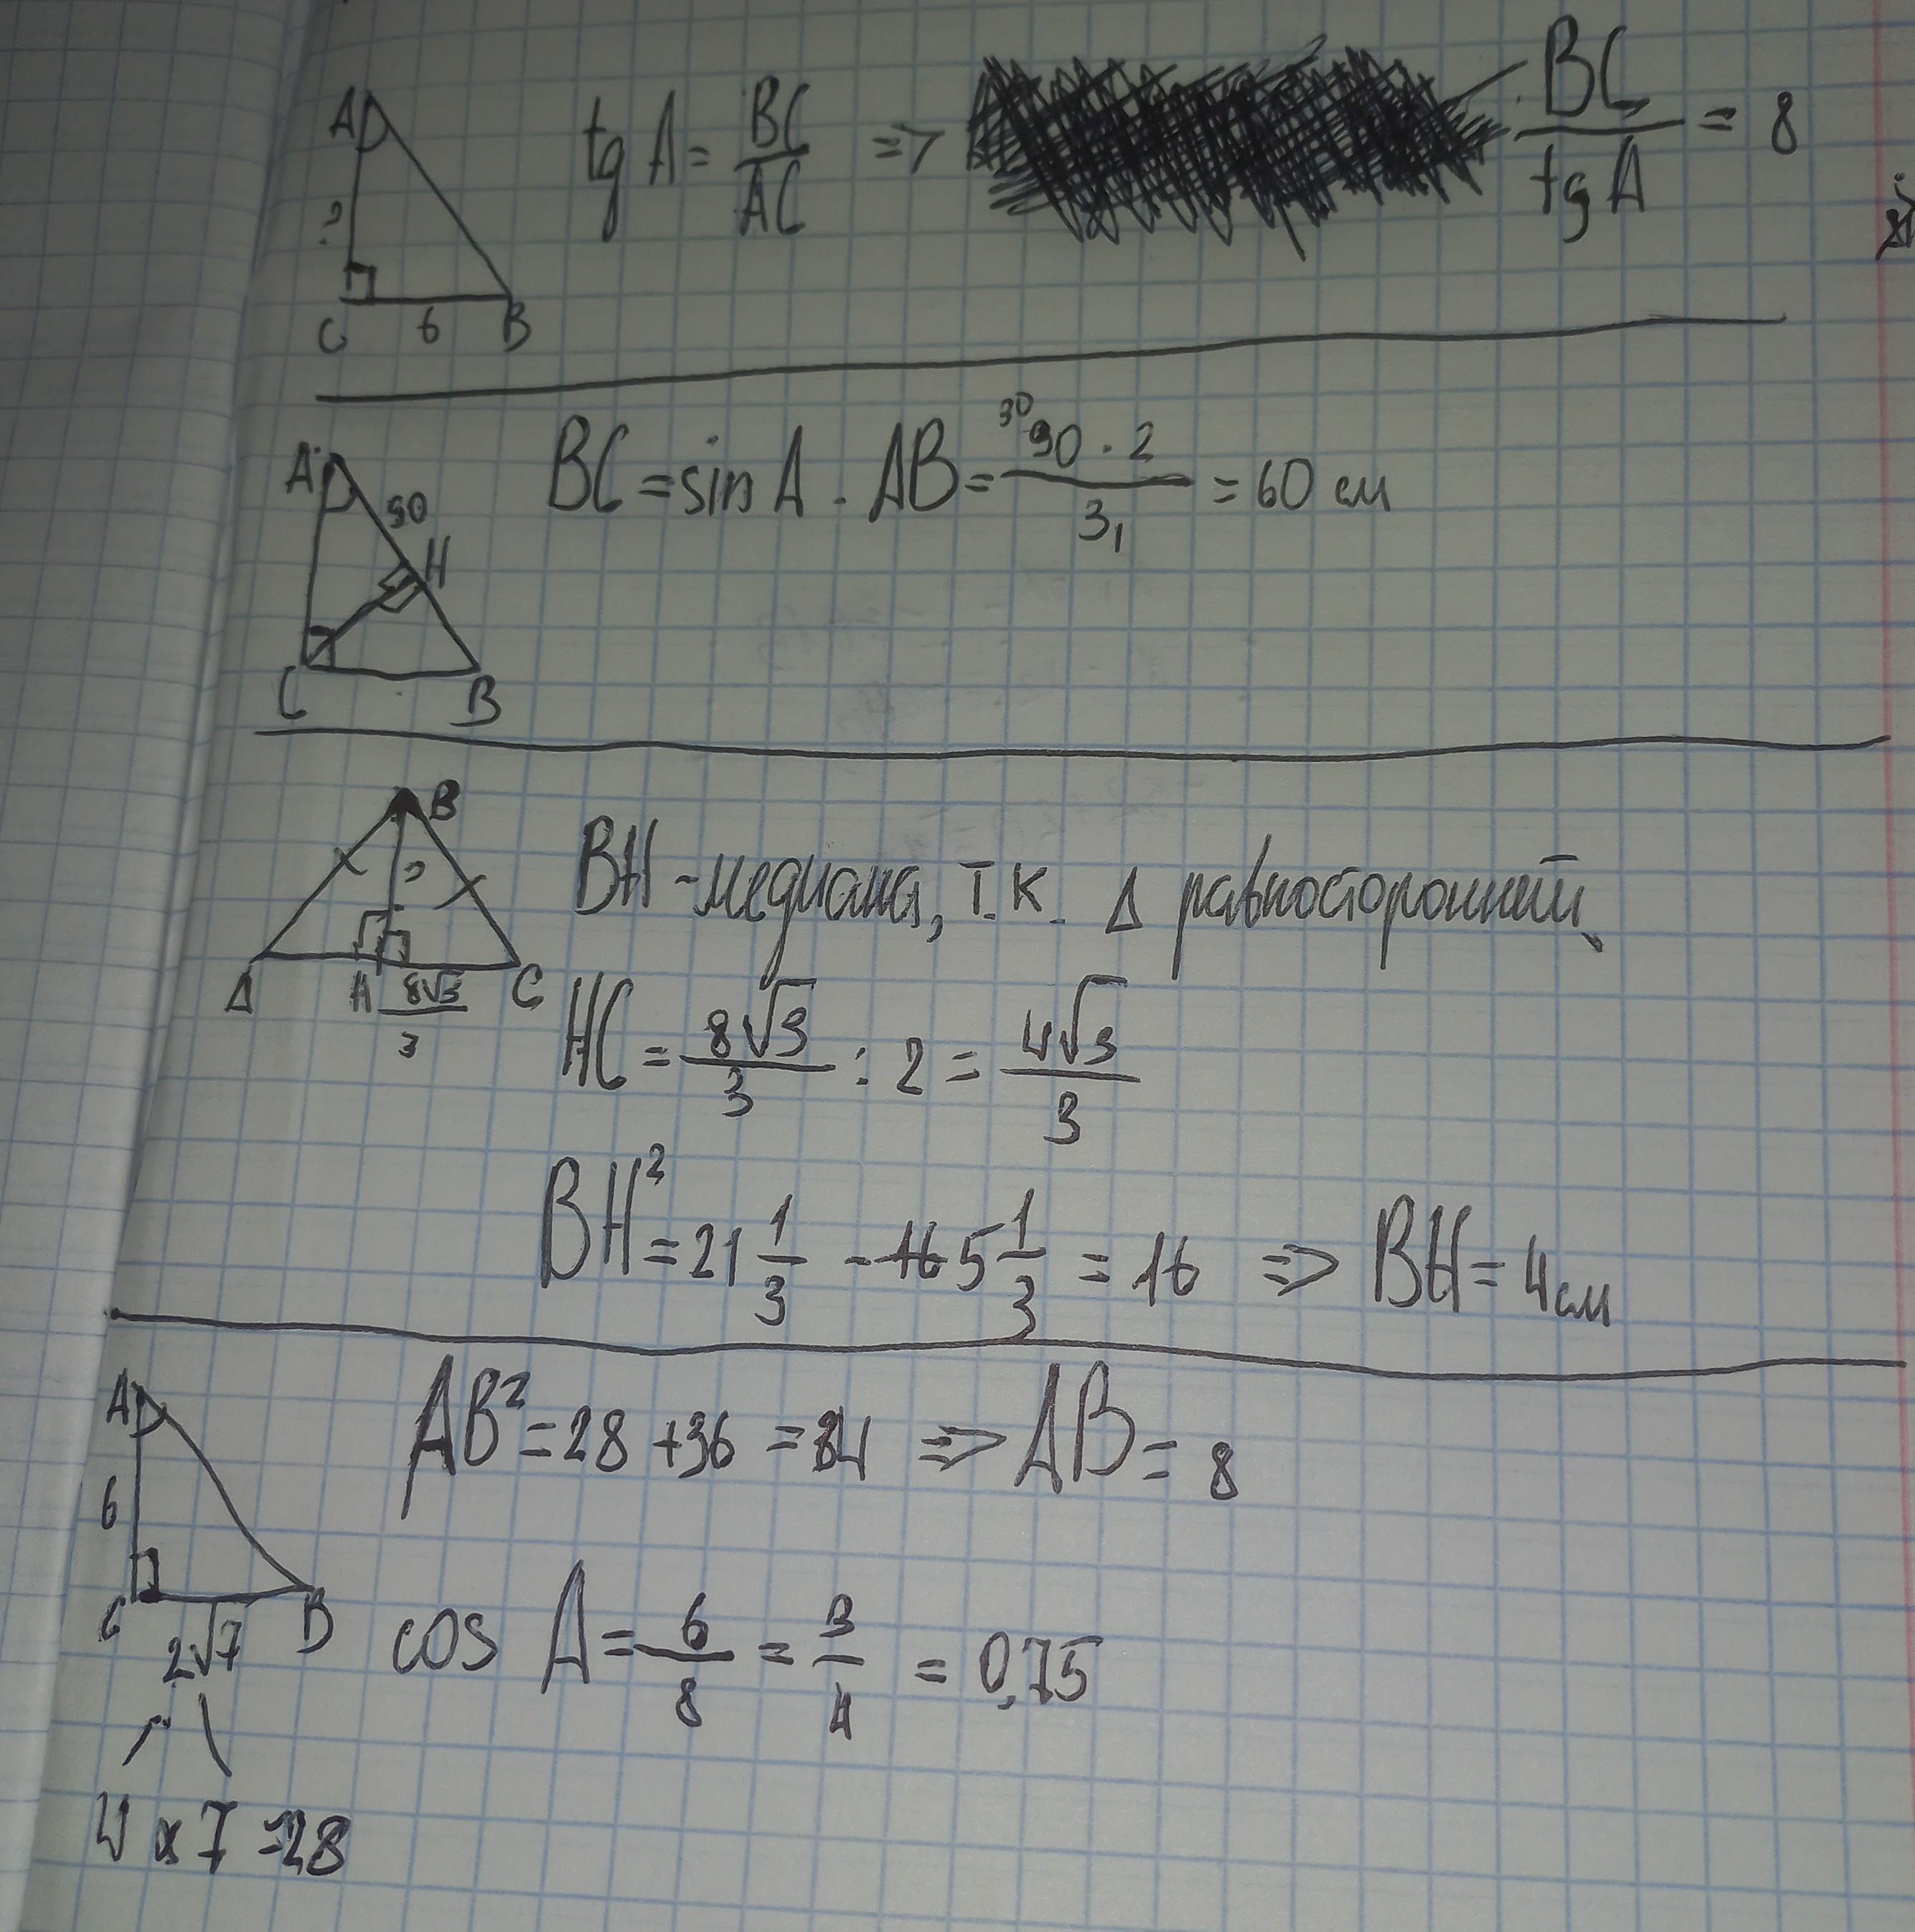 A
?
C 6 B
tg A = BC/AC => BC/tg A = 8
A
90
H
C B
BC = sin A · AB = 30 90 · 2 / 3 1 = 60 см
B
?
A H 8√3/3 C
BH - медиана, т.к. Δ равносторонний
HC = 8√3/3 : 2 = 4√3/3
BH² = 21 1/3 - 5 1/3 = 16 => BH = 4 см
A
6
C B
2√7
4 x 7 = 28
AB² = 28 + 36 = 84 => AB = 8
cos A = 6/8 = 3/4 = 0,75